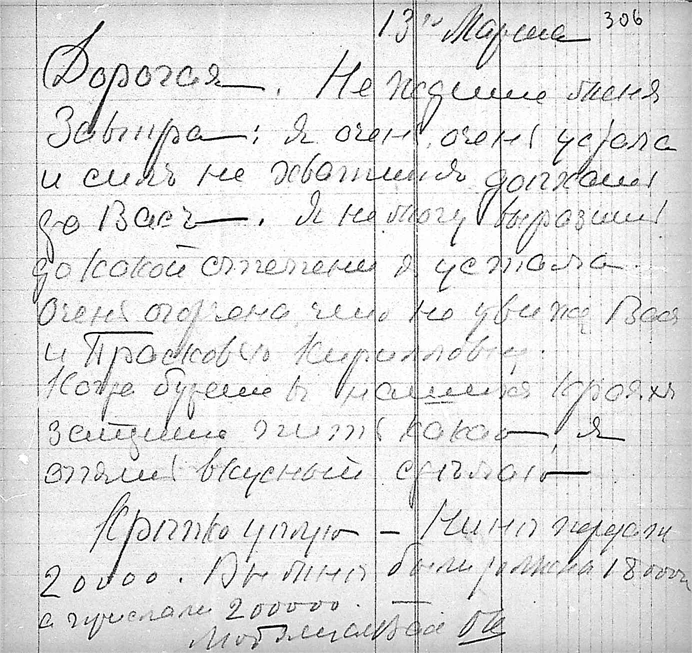 13го Марта 306
Дорогая. Не ждите меня
Завтра: я очень, очень устала
и силъ не хватитъ доѣхать
до Васъ. Я не могу выразить
до какой степени я устала.
Очень огорчена, что не увижу Васъ
и Прасковью Кирилловну.
Когда будете въ нашихъ краяхъ
зайдите пить какао, я
опять вкусный сдѣлаю
Крѣпко цѣлую — Нинѣ передали
20000. Вы мнѣ были должны 18000
а прислали 200000. —
Любящая Вас